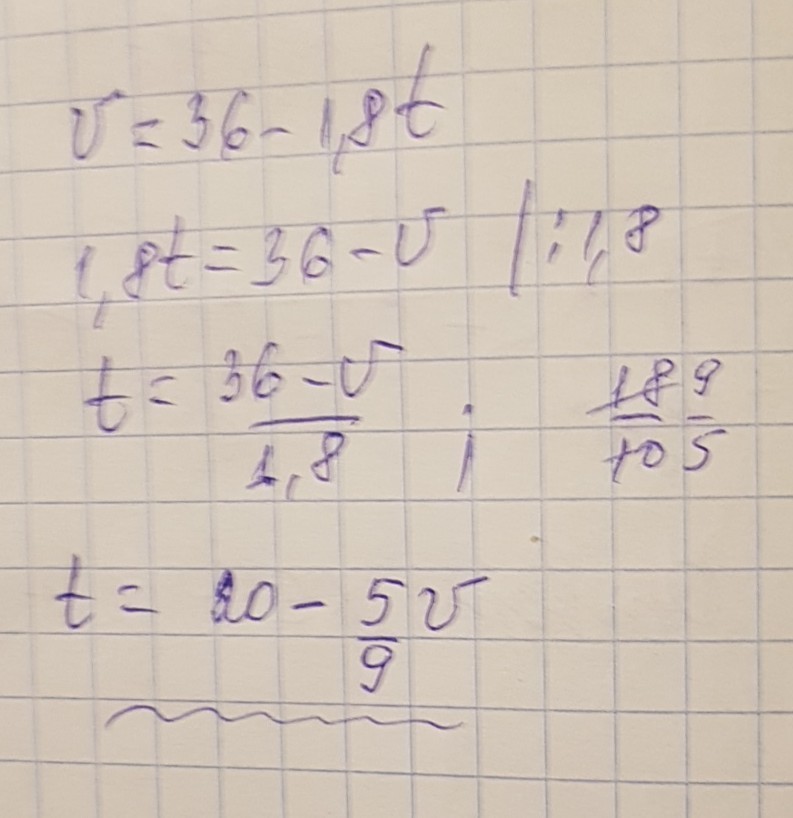 v = 36 - 1,8t
1,8t = 36 - v | : 1,8
t = 36 - v / 1,8 ; 18/10 9/5
t = 20 - 5/9 v